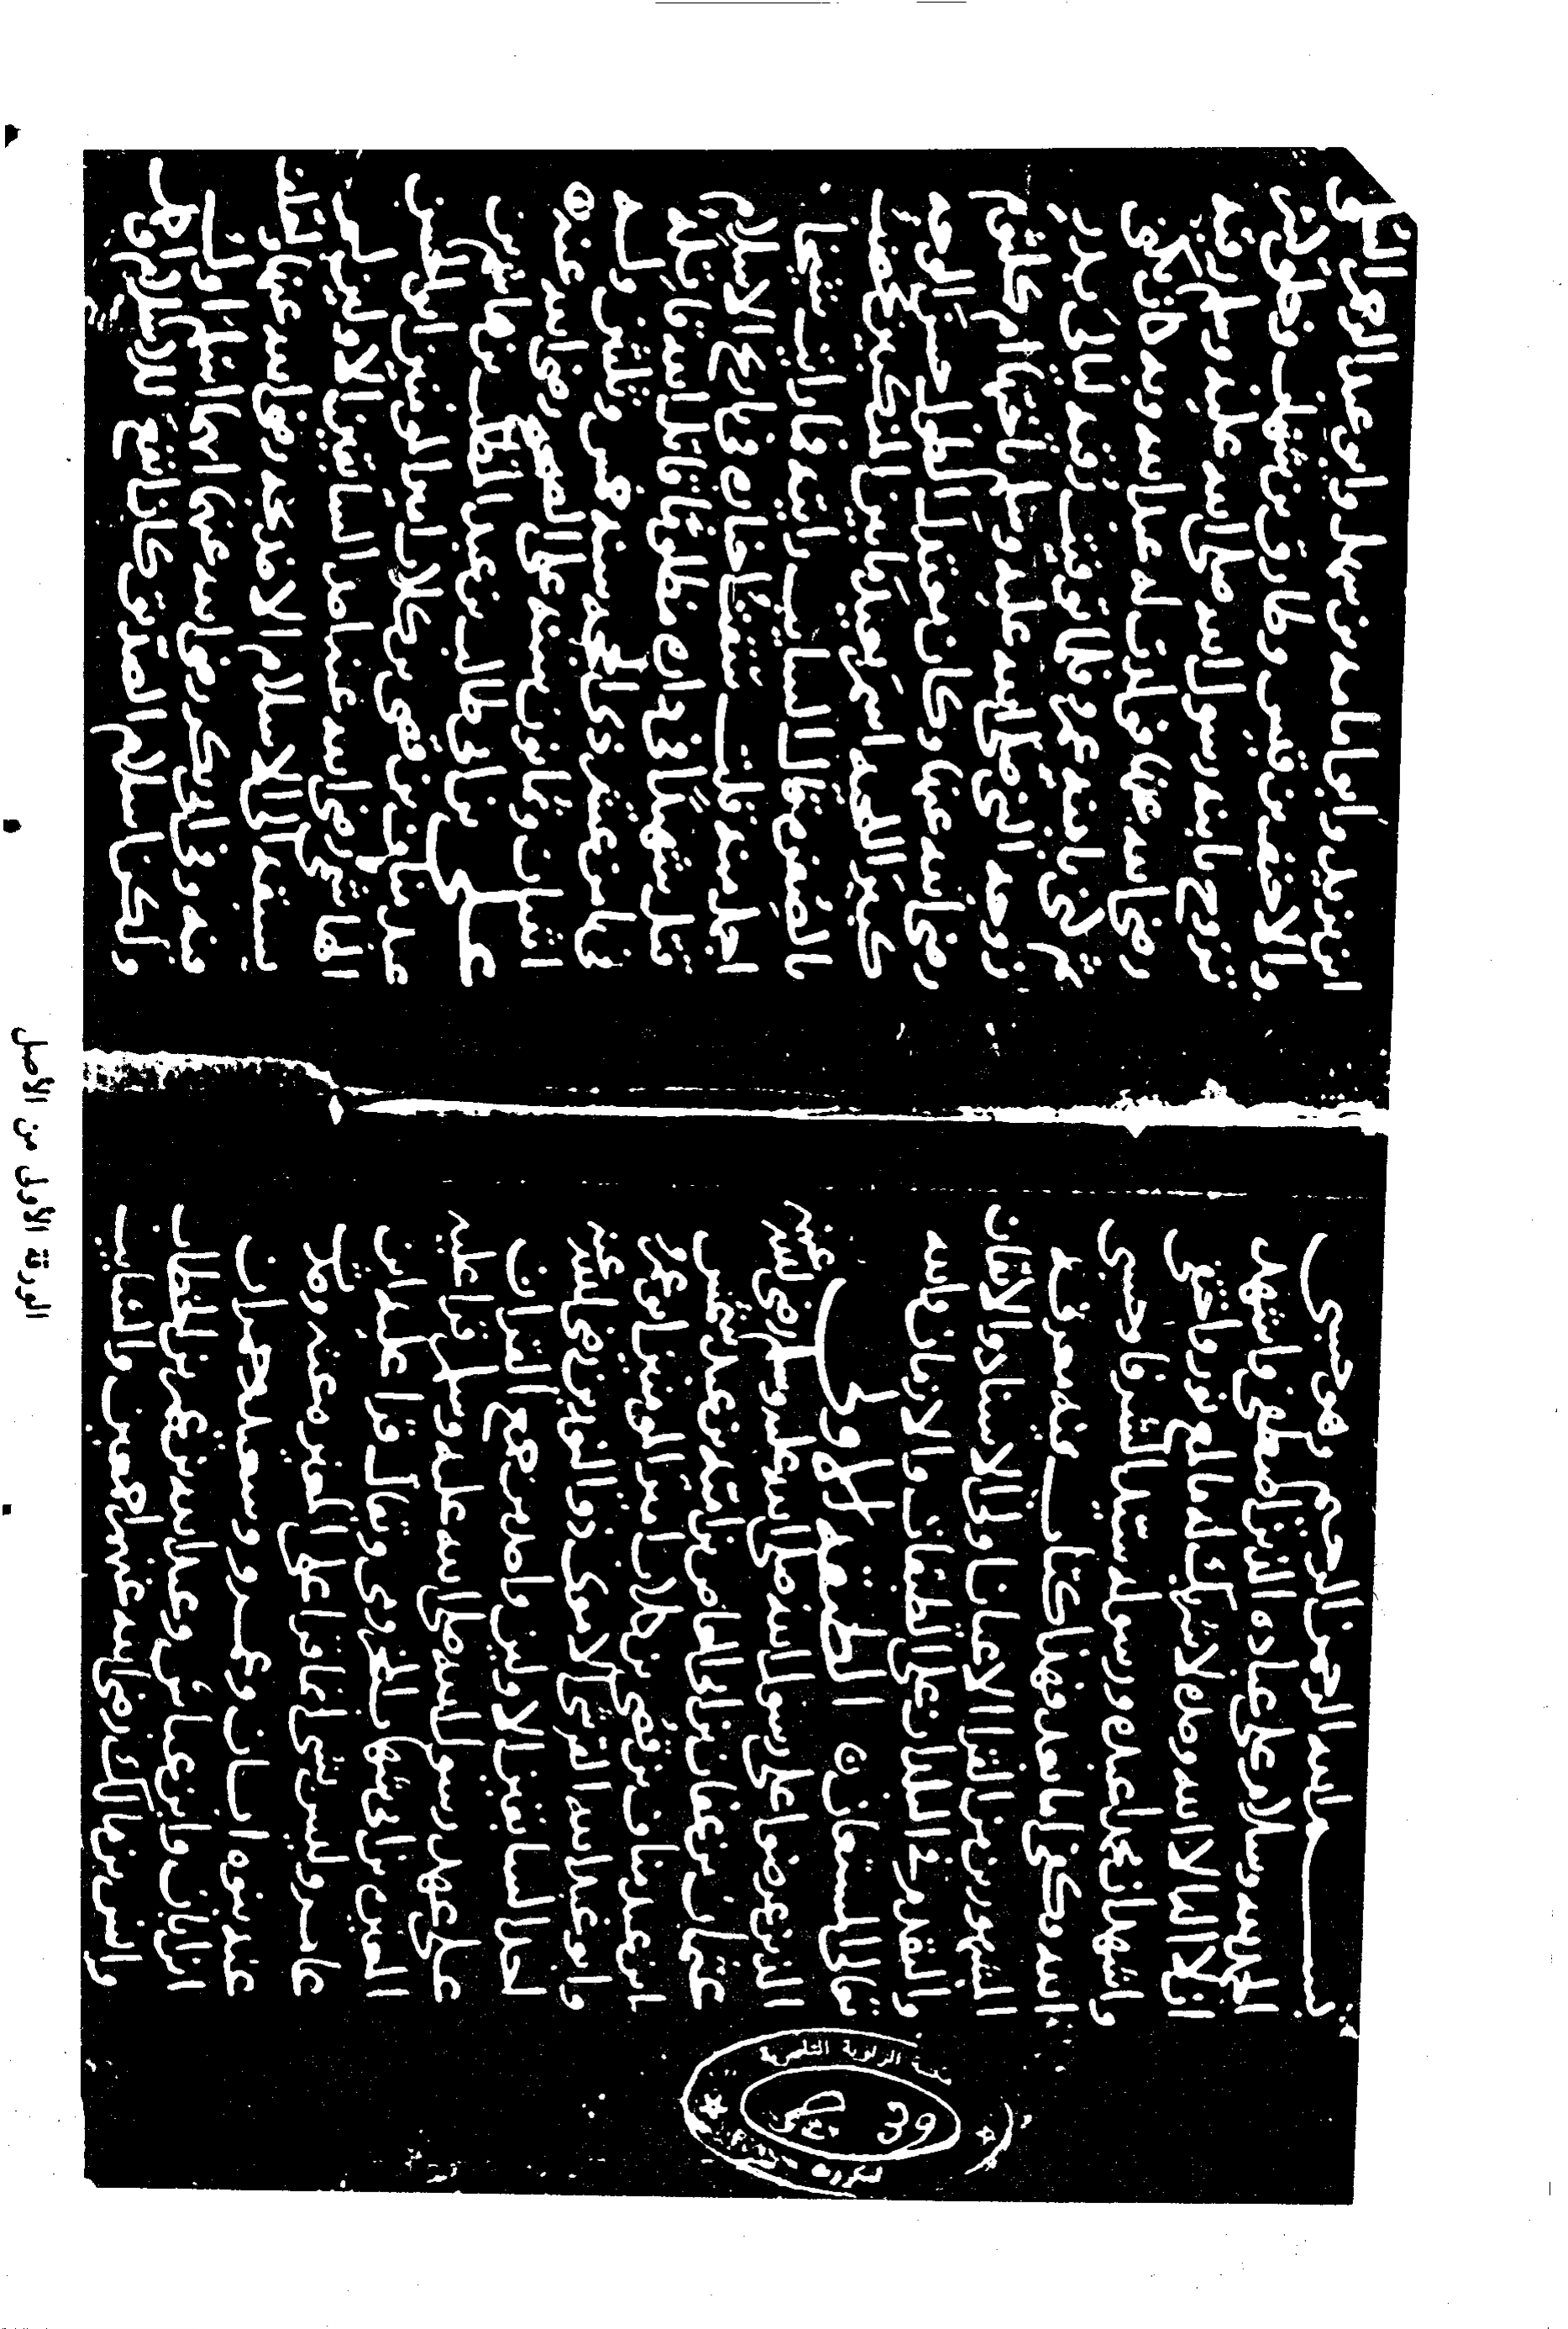 بسم الله الرحمن الرحيم وهو حسبي
الحمد لله وسلام على عباده الذين اصطفى واشهد
ان لا اله الا الله وحده لا شريك له
واشهد ان محمدا عبده ورسوله
اما بعد فهذا كتاب
المشهورين من القراء الاعيان اولي الاسناد والاتقان
والتقدم في البلدان على الطبقات والازمان والله
تعالى المستعان الطبقة الاولى
الذين عرضوا على رسول الله صلى الله عليه وسلم رضي الله عنهم
عثمان بن عفان بن ابي العاص بن امية بن عبد شمس
ابن عبد مناف بن قصي بن كلاب امير المومنين ابو عمرو
وابو عبد الله القرشي الاموي ذو النورين رضي الله عنه
احد السابقين الاولين واحد من جمع القران
على عهد رسول الله صلى الله عليه وسلم قرا عليه
المغيرة بن ابي شهاب المخزومي ويقال قرا عليه ابن
عامر وليس بشي انما قرا على المغيرة عنه وحدث
عنه بنوه ابان وعمرو وسعيد وحمران
ابن ابان وابن عباس وعبد الله بن عمر بن الخطاب
وانس بن مالك رضي الله عنهم والسائب
ابن يزيد وابو امامة بن سهل وابو عبد الرحمن
والاحنف بن قيس وطارق بن شهاب وخلق كثير
تزوج بابنة رسول الله صلى الله عليه وسلم رقية
رضي الله عنها فولدت له عبد الله وبه كان يكنى
ثم كني بابنه عمرو فلما توفيت رقية ليالي بدر
زوجه النبي صلى الله عليه وسلم باختها ام كلثوم
رضي الله عنها وكان معتدل الطول حسن الوجه
كبير اللحية اسمر بعيد ما بين المنكبين يخضب
بالصفرة قال السائب رايته فما رايت شيخا
اجمل منه قلت الاسلام
قتل شهيدا في داره مظلوما قاتل الله قاتله
في ثامن عشر ذي الحجة سنة خمس وثلثين وله
اثنان وثمانون سنة على الصحيح رضي الله عنه
علي بن ابي طالب بن عبد المطلب بن هاشم بن
عبد مناف بن قصي بن كلاب امير المومنين ابو الحسن
الهاشمي رضي الله عنه احد السابقين الاولين لم
يسبقه الى الاسلام الا خديجة رضي الله عنها واختلف
فيه وفي ابي بكر رضي الله عنهما ايهما اسلم اول
ولكن اسلام الصديق كان انفع للاسلام
مكتبة الزاوية الناصرية
39
الورقة الأولى من الأصل